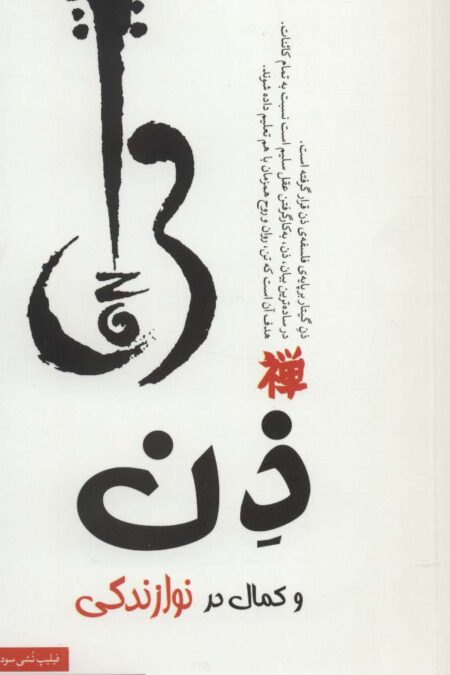 ذنِ گیتار بر پایه‌ی فلسفه‌ی ذن قرار گرفته است.
در ساده‌ترین بیان، ذن، به‌کارگرفتن عقل سلیم است نسبت به تمام کائنات.
هدف آن است که تن، روان و روح همزمان با هم تعلیم داده شوند.
禪
ذِن
و کمال در نوازندگی
فیلیپ تُشی سود